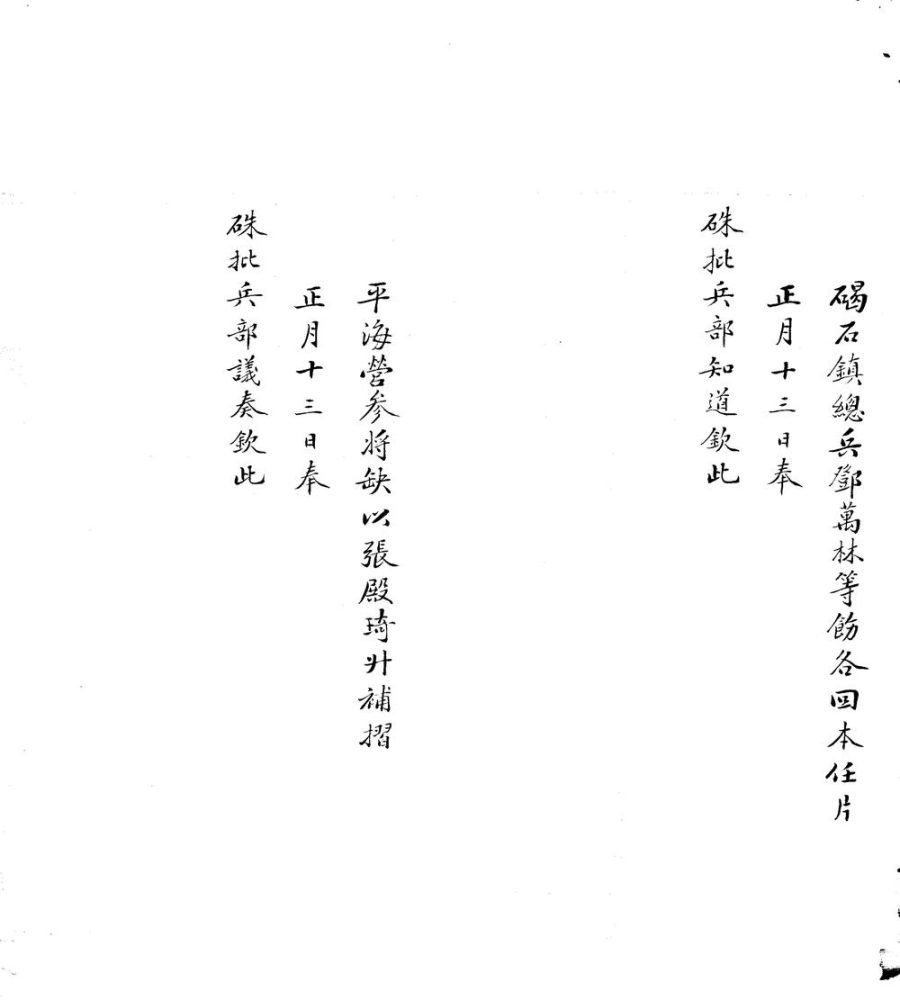 碣石鎮總兵鄧萬林等飭各回本任片
正月十三日奉
硃批兵部知道欽此
平海營參將缺以張殿琦升補摺
正月十三日奉
硃批兵部議奏欽此